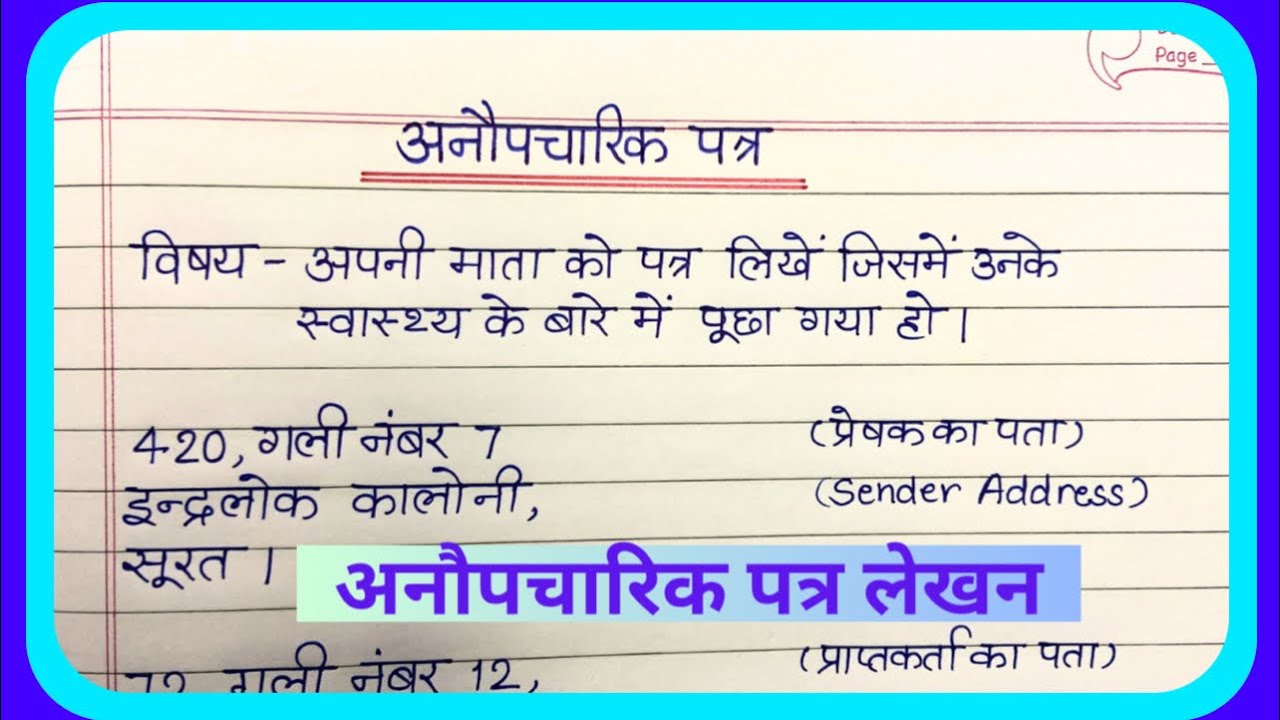 Page
अनौपचारिक पत्र
विषय - अपनी माता को पत्र लिखें जिसमें उनके
स्वास्थ्य के बारे में पूछा गया हो।
420, गली नंबर 7 (प्रेषक का पता)
इन्द्रलोक कालोनी, (Sender Address)
सूरत।
अनौपचारिक पत्र लेखन
गली नंबर 12, (प्राप्तकर्ता का पता)